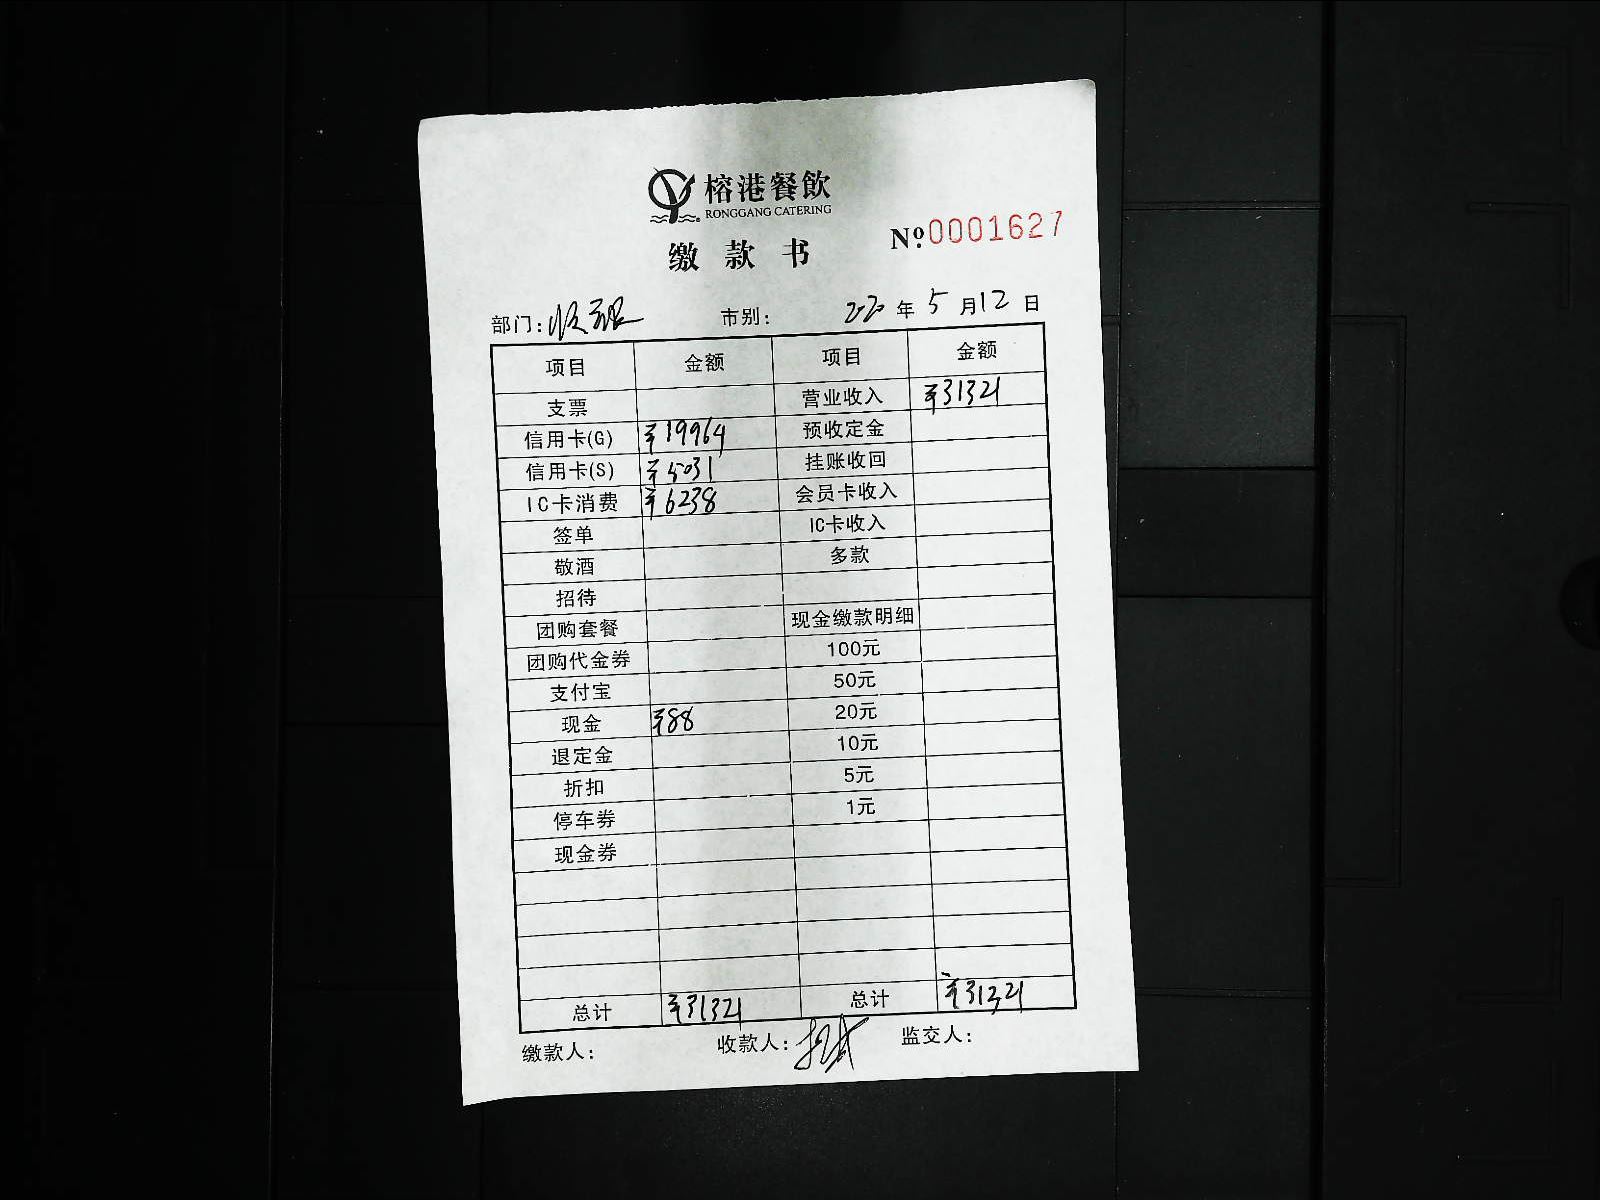 榕港餐飲
RONGGANG CATERING
缴款书
Nº:0001627
部门:收银 市别: 2020年5月12日
项目 金额 项目 金额
支票 营业收入 ¥31321
信用卡(G) ¥19964 预收定金
信用卡(S) ¥5031 挂账收回
IC卡消费 ¥6238 会员卡收入
签单 IC卡收入
敬酒 多款
招待
团购套餐 现金缴款明细
团购代金券 100元
支付宝 50元
现金 ¥88 20元
退定金 10元
折扣 5元
停车券 1元
现金券
总计 ¥31321 总计 ¥31321
缴款人: 收款人: 监交人: